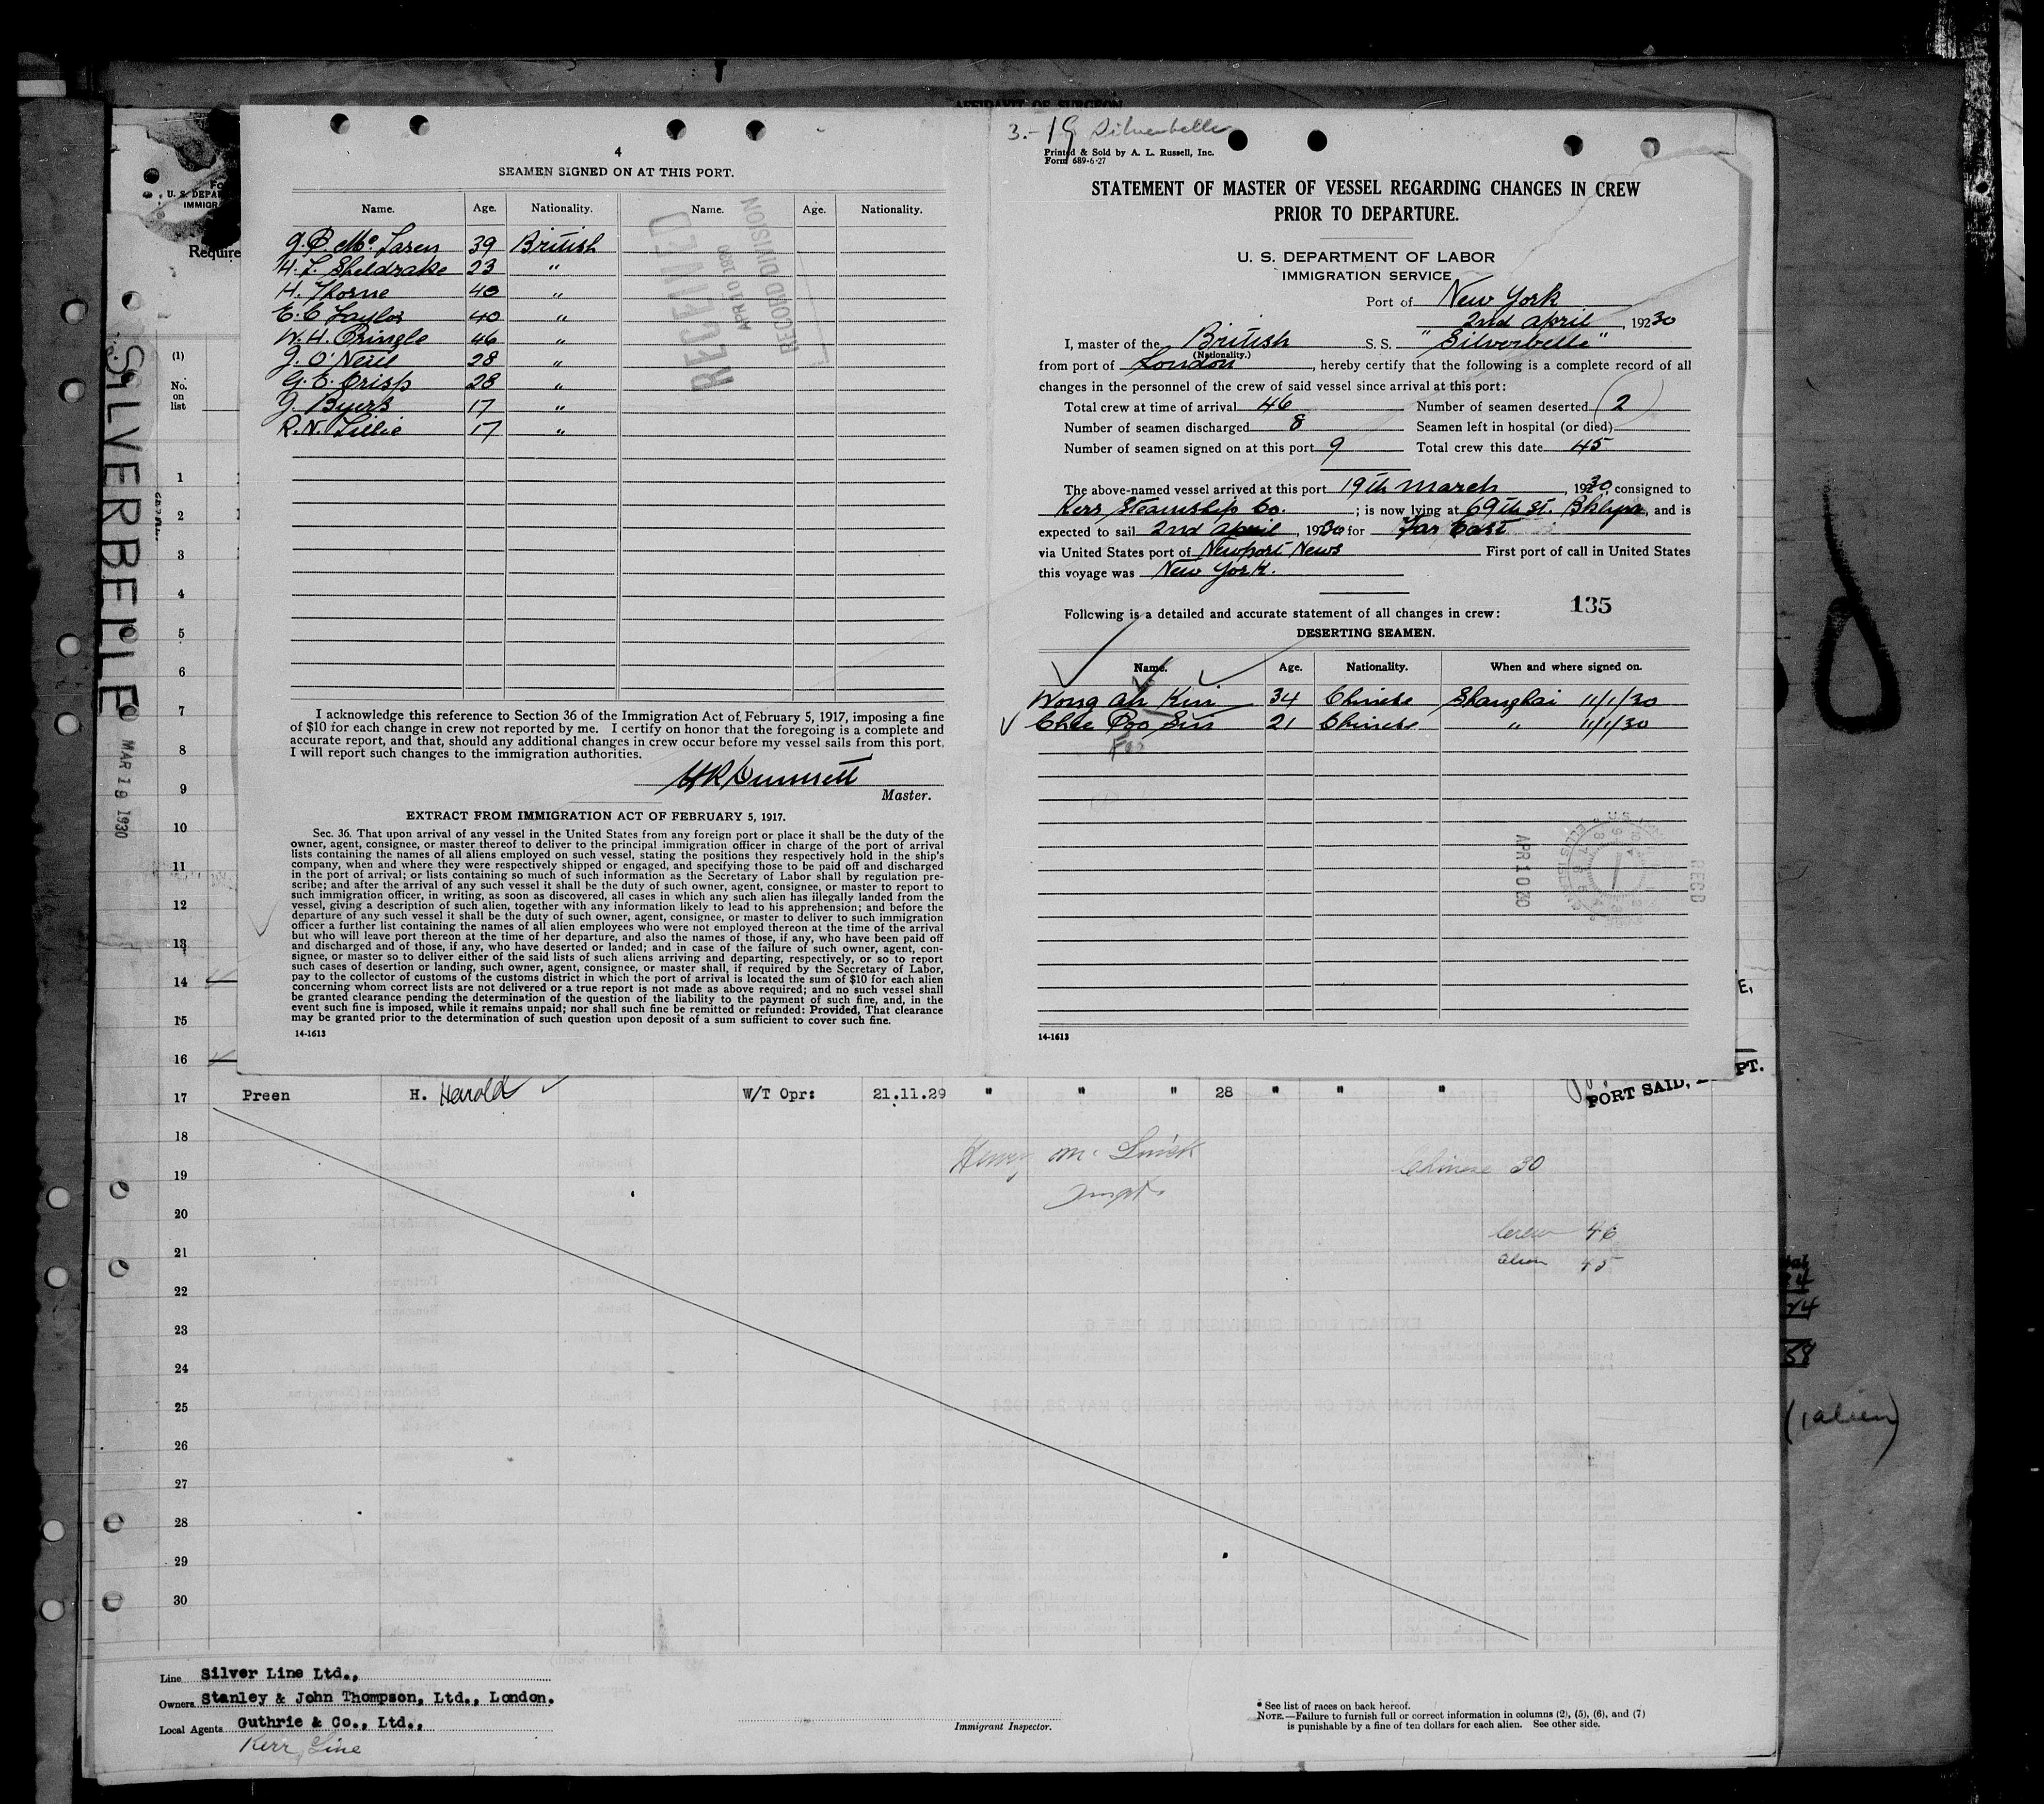 AFFIDAVIT OF SURGEON
4
SEAMEN SIGNED ON AT THIS PORT.
Name. Age. Nationality. Name. Age. Nationality.
39 British
H. L. Sheldrake 23 "
H. Thorne 40 "
E. C Taylor 40 "
W. H. Pringle 46 "
J. O'Neill 28 "
G. E. Crisp 28 "
J. Byers 17 "
R. N. Lillie 17 "
RECEIVED
APR 10 1930
RECORD DIVISION
I acknowledge this reference to Section 36 of the Immigration Act of February 5, 1917, imposing a fine
of $10 for each change in crew not reported by me. I certify on honor that the foregoing is a complete and
accurate report, and that, should any additional changes in crew occur before my vessel sails from this port,
I will report such changes to the immigration authorities.
Master.
EXTRACT FROM IMMIGRATION ACT OF FEBRUARY 5, 1917.
Sec. 36. That upon arrival of any vessel in the United States from any foreign port or place it shall be the duty of the
owner, agent, consignee, or master thereof to deliver to the principal immigration officer in charge of the port of arrival
lists containing the names of all aliens employed on such vessel, stating the positions they respectively hold in the ship's
company, when and where they were respectively shipped or engaged, and specifying those to be paid off and discharged
in the port of arrival; or lists containing so much of such information as the Secretary of Labor shall by regulation pre-
scribe; and after the arrival of any such vessel it shall be the duty of such owner, agent, consignee, or master to report to
such immigration officer, in writing, as soon as discovered, all cases in which any such alien has illegally landed from the
vessel, giving a description of such alien, together with any information likely to lead to his apprehension; and before the
departure of any such vessel it shall be the duty of such owner, agent, consignee, or master to deliver to such immigration
officer a further list containing the names of all alien employees who were not employed thereon at the time of the arrival
but who will leave port thereon at the time of her departure, and also the names of those, if any, who have been paid off
and discharged and of those, if any, who have deserted or landed; and in case of the failure of such owner, agent, con-
signee, or master so to deliver either of the said lists of such aliens arriving and departing, respectively, or so to report
such cases of desertion or landing, such owner, agent, consignee, or master shall, if required by the Secretary of Labor,
pay to the collector of customs of the customs district in which the port of arrival is located the sum of $10 for each alien
concerning whom correct lists are not delivered or a true report is not made as above required; and no such vessel shall
be granted clearance pending the determination of the question of the liability to the payment of such fine, and, in the
event such fine is imposed, while it remains unpaid; nor shall such fine be remitted or refunded: Provided, That clearance
may be granted prior to the determination of such question upon deposit of a sum sufficient to cover such fine.
14-1613
3.-19 Silverbelle
Printed & Sold by A. L. Russell, Inc.
Form 689-6-27
STATEMENT OF MASTER OF VESSEL REGARDING CHANGES IN CREW
PRIOR TO DEPARTURE.
U. S. DEPARTMENT OF LABOR
IMMIGRATION SERVICE
Port of New York
2nd April, 19230
I, master of the British S. S. "Silverbelle"
(Nationality.)
from port of London, hereby certify that the following is a complete record of all
changes in the personnel of the crew of said vessel since arrival at this port:
Total crew at time of arrival 46 Number of seamen deserted (2)
Number of seamen discharged 8 Seamen left in hospital (or died)
Number of seamen signed on at this port 9 Total crew this date 45
The above-named vessel arrived at this port 19th March, 19230, consigned to
Kerr Steamship Co.; is now lying at 69th St. Bklyn, and is
expected to sail 2nd April, 1930 for Far East
via United States port of Newport News First port of call in United States
this voyage was New York.
135
Following is a detailed and accurate statement of all changes in crew:
DESERTING SEAMEN.
Name. Age. Nationality. When and where signed on.
Wong Ah Kin 34 Chinese Shanghai 11/1/30
Chee Poo Sin 21 Chinese " 11/1/30
Foo
APR 10 30
REC'D
14-1613
U. S. DEPAR
IMMIGRA
Require
SILVERBELLE
MAR 19 1930
(1)
No.
on
list
1
2
3
4
5
6
7
8
9
10
11
12
13
14
15
16
E,
PORT SAID,
PT.
17 Preen H. Harold W/T Opr: 21.11.29 " " " 28 " " "
18
19
20
21
22
23
24
25
26
27
28
29
30
Chinese 30
Crew 46
Alien 45
(1 alien)
Line Silver Line Ltd.,
Owners Stanley & John Thompson, Ltd., London.
Local Agents Guthrie & Co., Ltd.,
Kerr Line
Immigrant Inspector.
* See list of races on back hereof.
NOTE.—Failure to furnish full or correct information in columns (2), (5), (6), and (7)
is punishable by a fine of ten dollars for each alien. See other side.